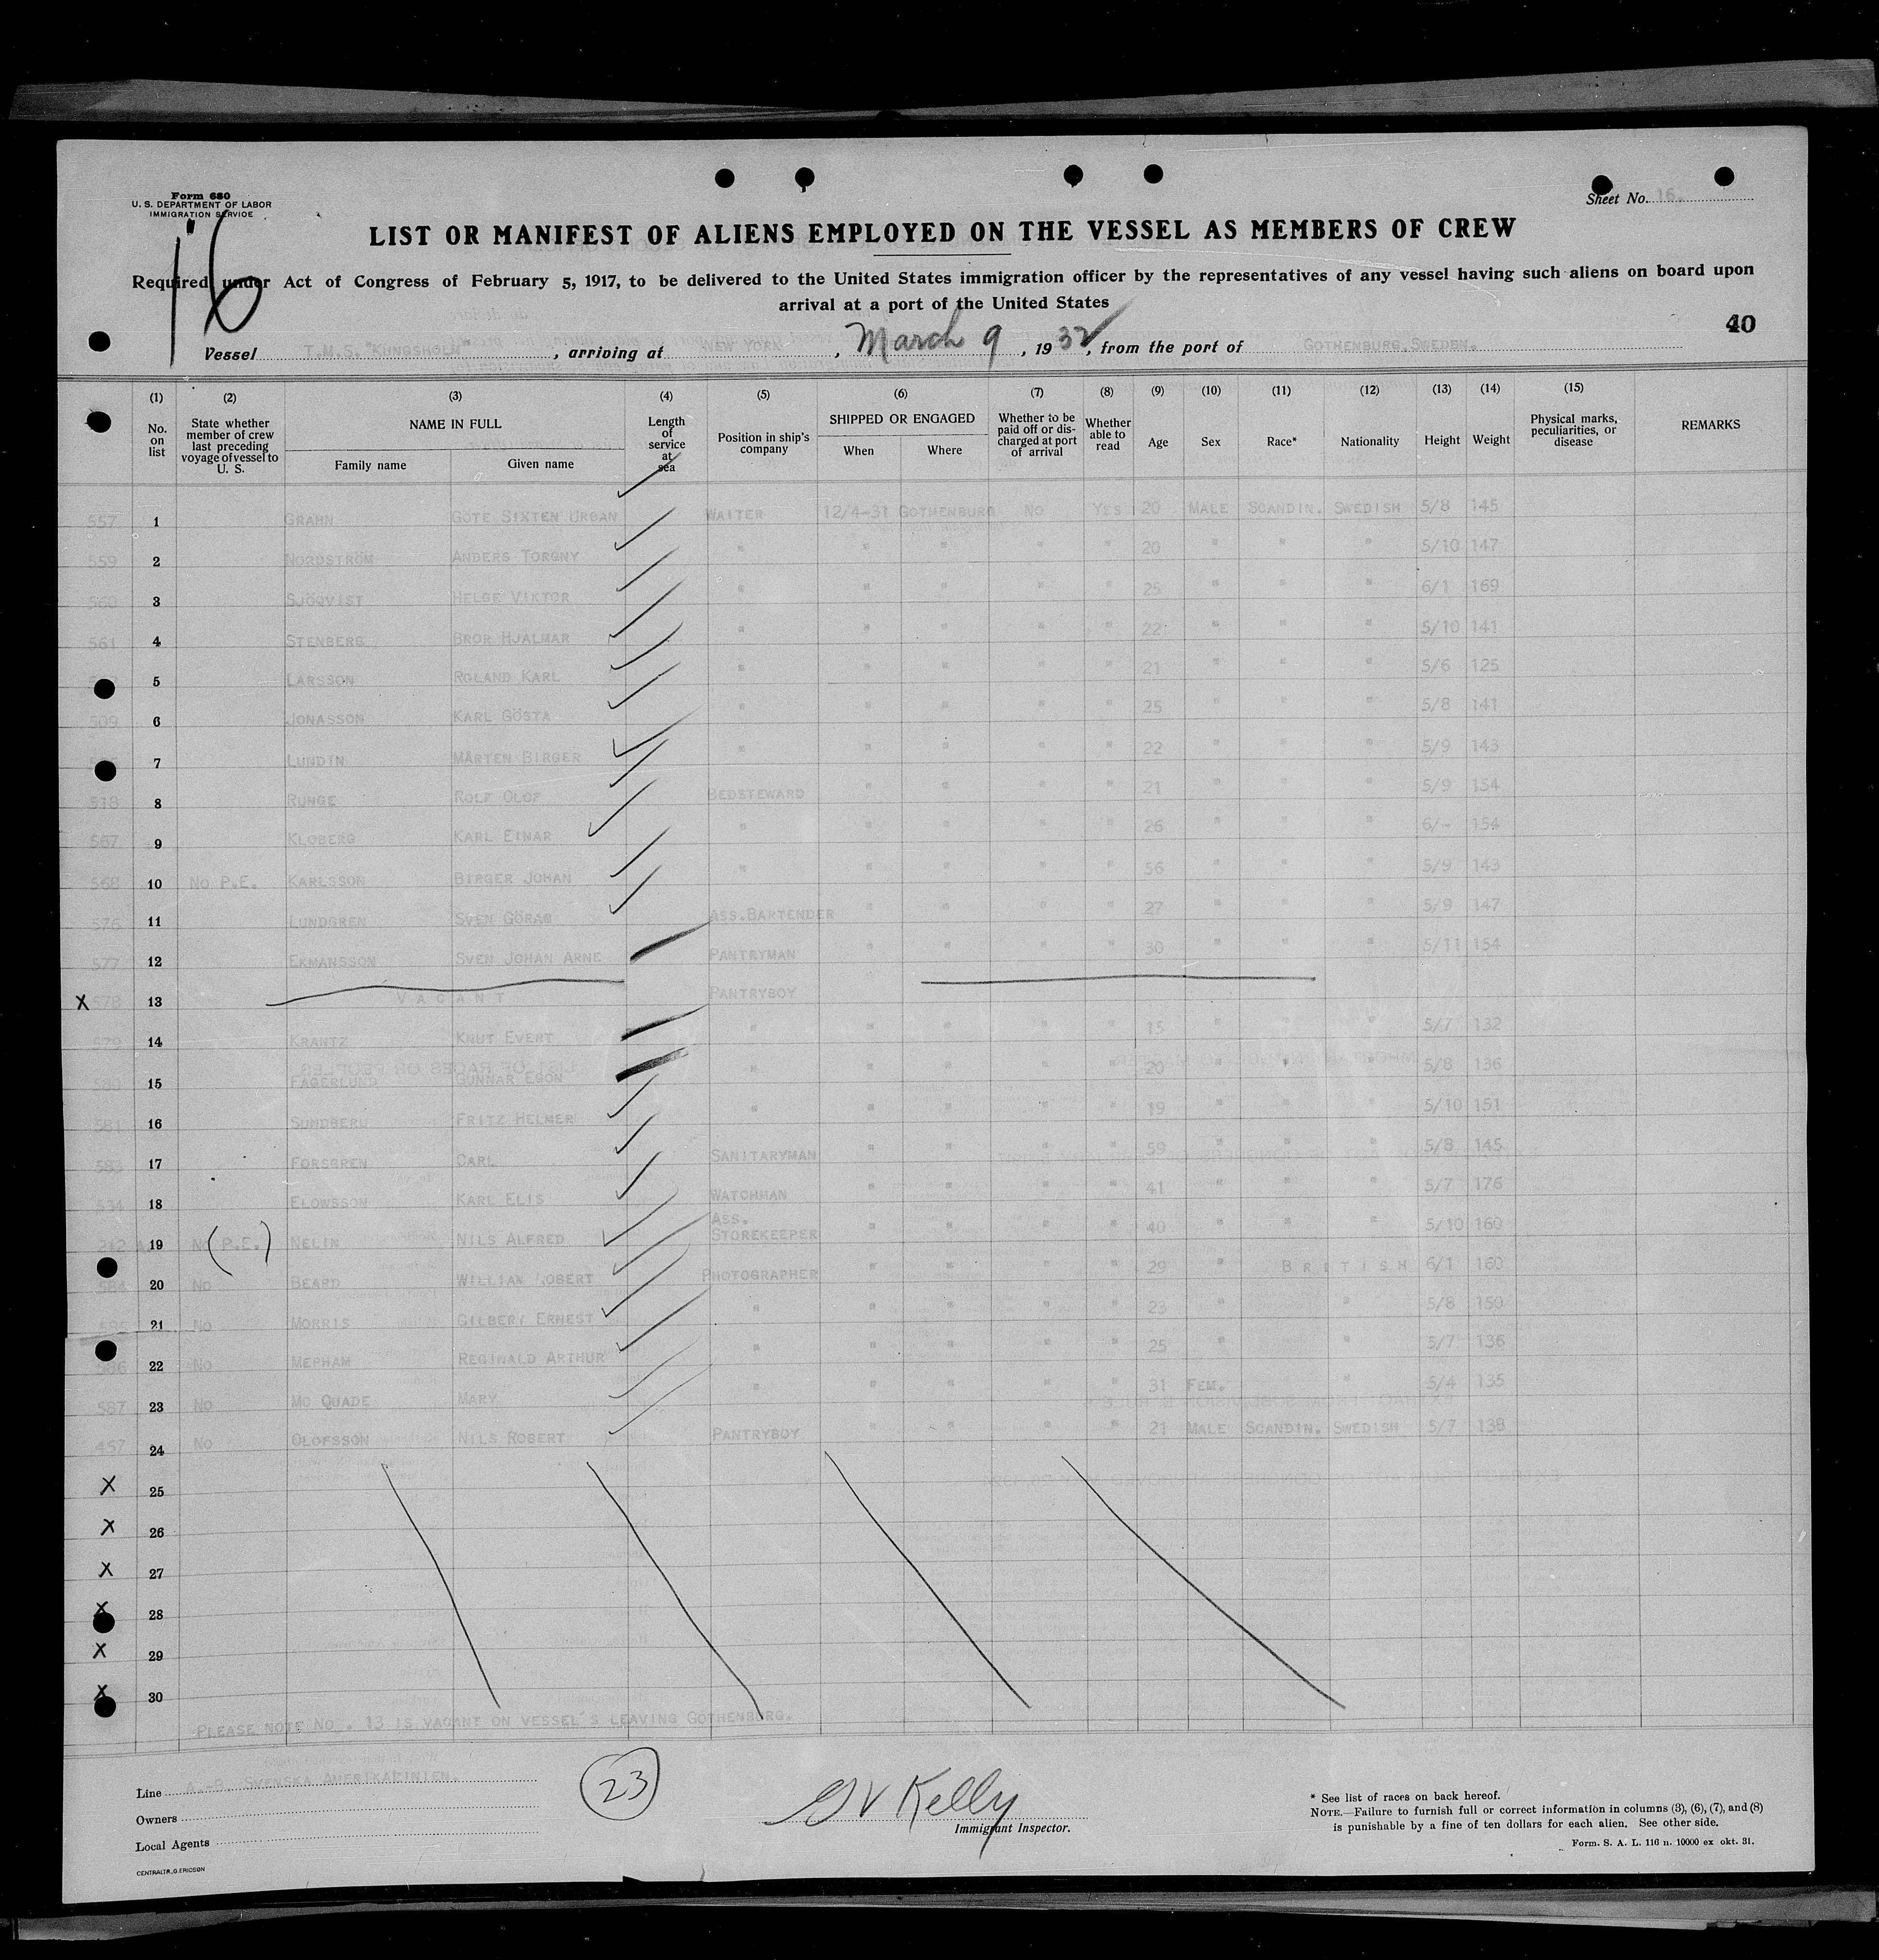 Form 680
U. S. DEPARTMENT OF LABOR
IMMIGRATION SERVICE
Sheet No. 16.
16
LIST OR MANIFEST OF ALIENS EMPLOYED ON THE VESSEL AS MEMBERS OF CREW
Required under Act of Congress of February 5, 1917, to be delivered to the United States immigration officer by the representatives of any vessel having such aliens on board upon
arrival at a port of the United States
40
Vessel T.M.S. "KUNGSHOLM", arriving at NEW YORK, March 9, 1932, from the port of GOTHENBURG, SWEDEN.
(1) (2) (3) (4) (5) (6) (7) (8) (9) (10) (11) (12) (13) (14) (15)
No. on list State whether member of crew last preceding voyage of vessel to U. S. NAME IN FULL Family name Given name Length of service at sea Position in ship's company SHIPPED OR ENGAGED When Where Whether to be paid off or discharged at port of arrival Whether able to read Age Sex Race* Nationality Height Weight Physical marks, peculiarities, or disease REMARKS
557 1 GRAHN GÖTE SIXTEN URBAN WAITER 12/4-31 GOTHENBURG NO YES 20 MALE SCANDIN. SWEDISH 5/8 145
559 2 NORDSTRÖM ANDERS TORGNY " " " " " 20 " " " 5/10 147
560 3 SJÖQVIST HELGE VIKTOR " " " " " 25 " " " 6/1 169
561 4 STENBERG BROR HJALMAR " " " " " 22 " " " 5/10 141
5 LARSSON ROLAND KARL " " " " " 21 " " " 5/6 125
509 6 JONASSON KARL GÖSTA " " " " " 25 " " " 5/8 141
7 LUNDIN MÅRTEN BIRGER " " " " " 22 " " " 5/9 143
518 8 RUNGE ROLF OLOF BEDSTEWARD " " " " 21 " " " 5/9 154
567 9 KLOBERG KARL EINAR " " " " " 26 " " " 6/- 154
568 10 NO P.E. KARLSSON BIRGER JOHAN " " " " " 56 " " " 5/9 143
576 11 LUNDGREN SVEN GÖRAN ASS.BARTENDER " " " " 27 " " " 5/9 147
577 12 EKMANSSON SVEN JOHAN ARNE PANTRYMAN " " " " 30 " " " 5/11 154
X 578 13 VACANT PANTRYBOY
579 14 KRANTZ KNUT EVERT " " " " " 15 " " " 5/7 132
580 15 FAGERLUND GUNNAR EGON " " " " " 20 " " " 5/8 136
581 16 SUNDBERG FRITZ HELMER " " " " " 19 " " " 5/10 151
583 17 FORSGREN CARL SANITARYMAN " " " " 59 " " " 5/8 145
534 18 ELOWSSON KARL ELIS WATCHMAN " " " " 41 " " " 5/7 176
212 19 NO (P.E.) NELIN NILS ALFRED ASS. STOREKEEPER " " " " 40 " " " 5/10 160
584 20 NO BEARD WILLIAN ROBERT PHOTOGRAPHER " " " " 29 " BRITISH 6/1 160
585 21 NO MORRIS GILBERT ERNEST " " " " " 23 " " 5/8 150
586 22 NO MEPHAM REGINALD ARTHUR " " " " " 25 " " 5/7 136
587 23 NO MC QUADE MARY " " " " " 31 FEM. " 5/4 135
457 24 NO OLOFSSON NILS ROBERT PANTRYBOY " " " " 21 MALE SCANDIN. SWEDISH 5/7 138
X 25
X 26
X 27
X 28
X 29
X 30
PLEASE NOTE NO. 13 IS VACANT ON VESSEL'S LEAVING GOTHENBURG.
Line A.-B. SVENSKA AMERIKALINIEN.
Owners
Local Agents
CENTRALTR. G. ERICSON
23
GV Kelly
Immigrant Inspector.
* See list of races on back hereof.
NOTE.—Failure to furnish full or correct information in columns (3), (6), (7), and (8)
is punishable by a fine of ten dollars for each alien. See other side.
Form. S. A. L. 116 n. 10000 ex okt. 31.